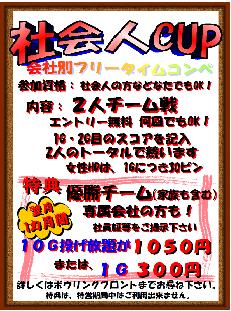 社会人CUP
会社別フリータイムコンペ
参加資格：社会人の方などなたでもOK！
内容：2人チーム戦
エントリー無料 何回でもOK！
1G・2G目のスコアを記入
2人のトータルで競います
女性HDは、1Gにつき10ピン
特典
優勝チーム(家族も含む)
翌月1カ月間
専属会社の方も！
社員証等をご提示下さい
10G投げ放題が1050円
または、1G 300円
詳しくはボウリングフロントまでお尋ね下さい。
特典は、特営期間中はご利用出来ません。